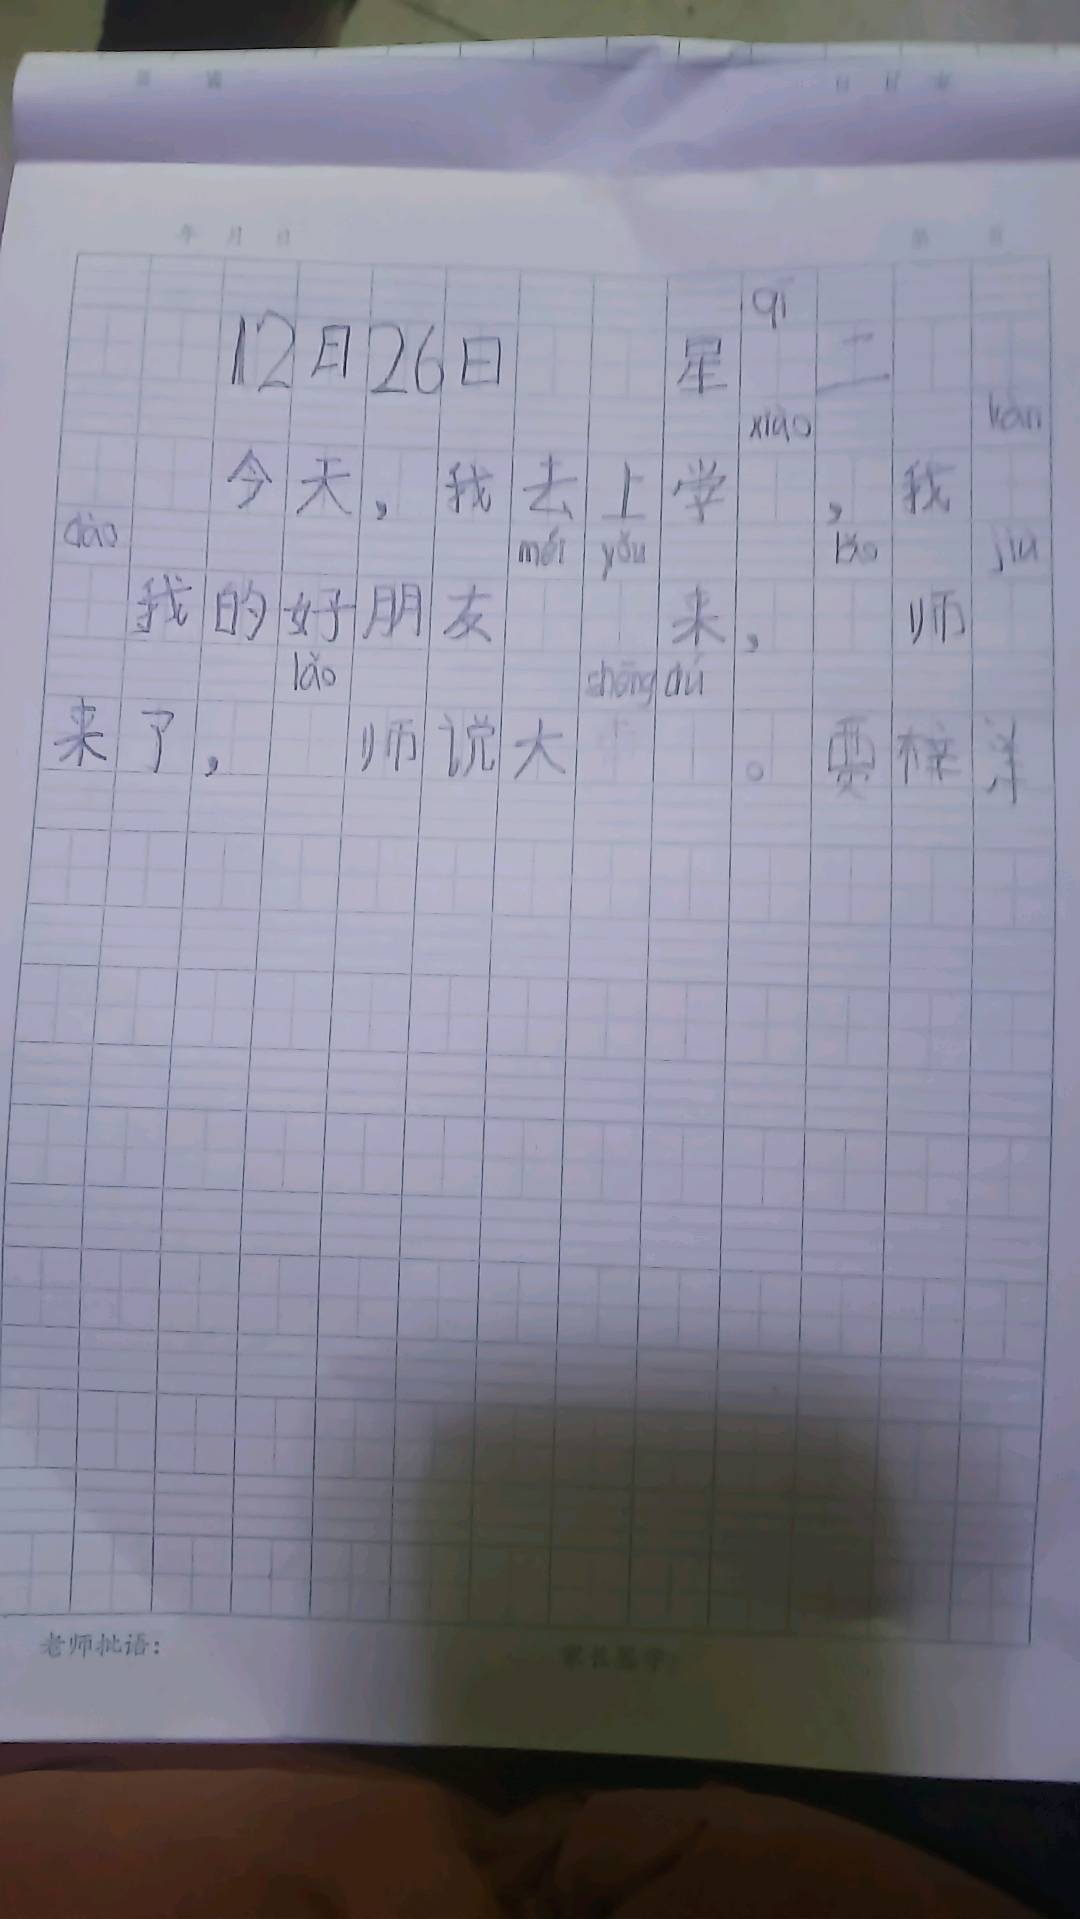 年 月 日
qī
12月26日 星 二
xiào kàn
今天，我去上学 ，我
dào méi yǒu lǎo jiù
我的好朋友 来， 师
lǎo shēng
来了， 师说大 。贾梓洋
老师批语：